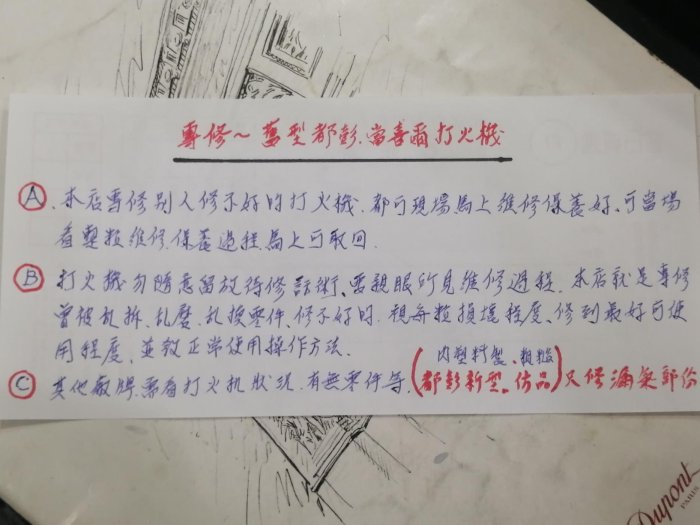 專修～舊型都彭.當喜爾打火機
Ⓐ.本店專修別人修不好的打火機.都可現場馬上維修保養好、可當場
看整粒維修.保養過程.馬上可取回.
Ⓑ 打火機勿隨意留放待修話術、要親眼所見維修過程.本店就是專修
曾被乱拆、乱磨、乱換零件、修不好的.視每粒損壞程度、修到最好可使
用程度、並教正常使用操作方法.
內塑料型、粗糙
Ⓒ 其他廠牌.需看打火机狀況.有無零件等.(都彭新型、仿品)只修漏氣部份
Dupont
PARIS